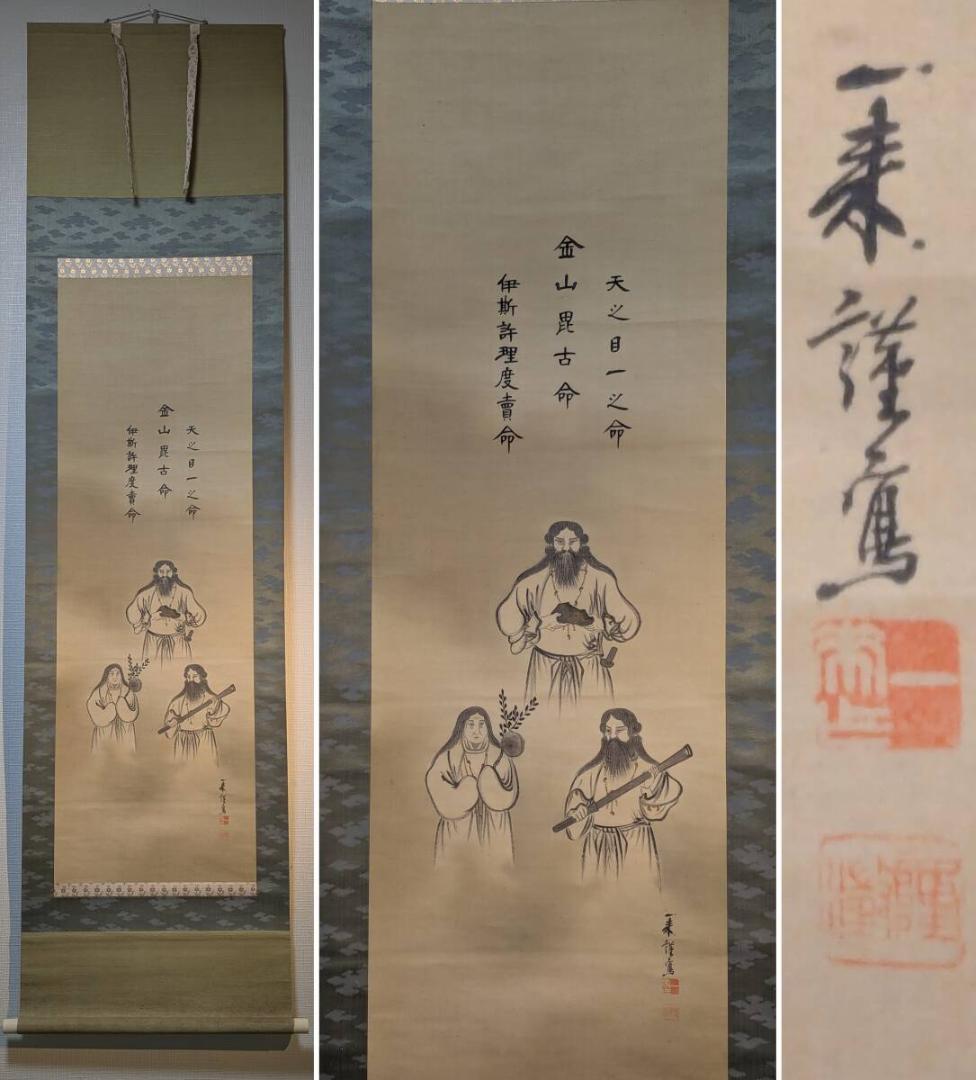 天之目一之命
金山毘古命
伊斯許理度賣命
一来謹寫
天之目一之命
金山毘古命
伊斯許理度賣命
一来謹寫
一来謹寫